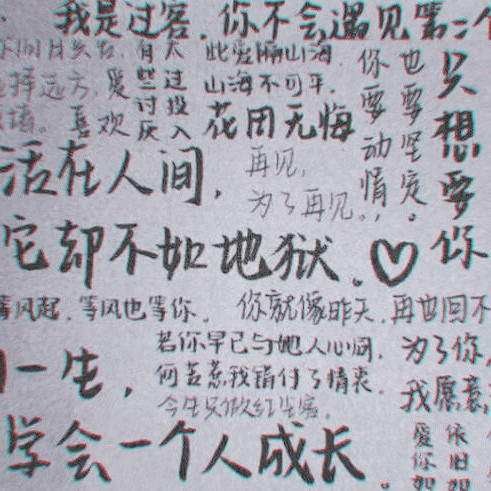 我是过客,你不会遇见第二个
此爱隔山海,
山海不可平。
择远方,爱
喜欢
有些讨厌
太过投入
花田无悔
你要动情,
也要坚定。
只想要你
活在人间,
再见,
为了再见。
它却不如地狱。♡
等风起,等风也等你。
你就像昨天,再也回不
若你早已与她人心同,
何苦惹我错付了情衷。
今生只做红尘客,
为了你,
我愿意
一生,
学会一个人成长。
爱你如
依旧如